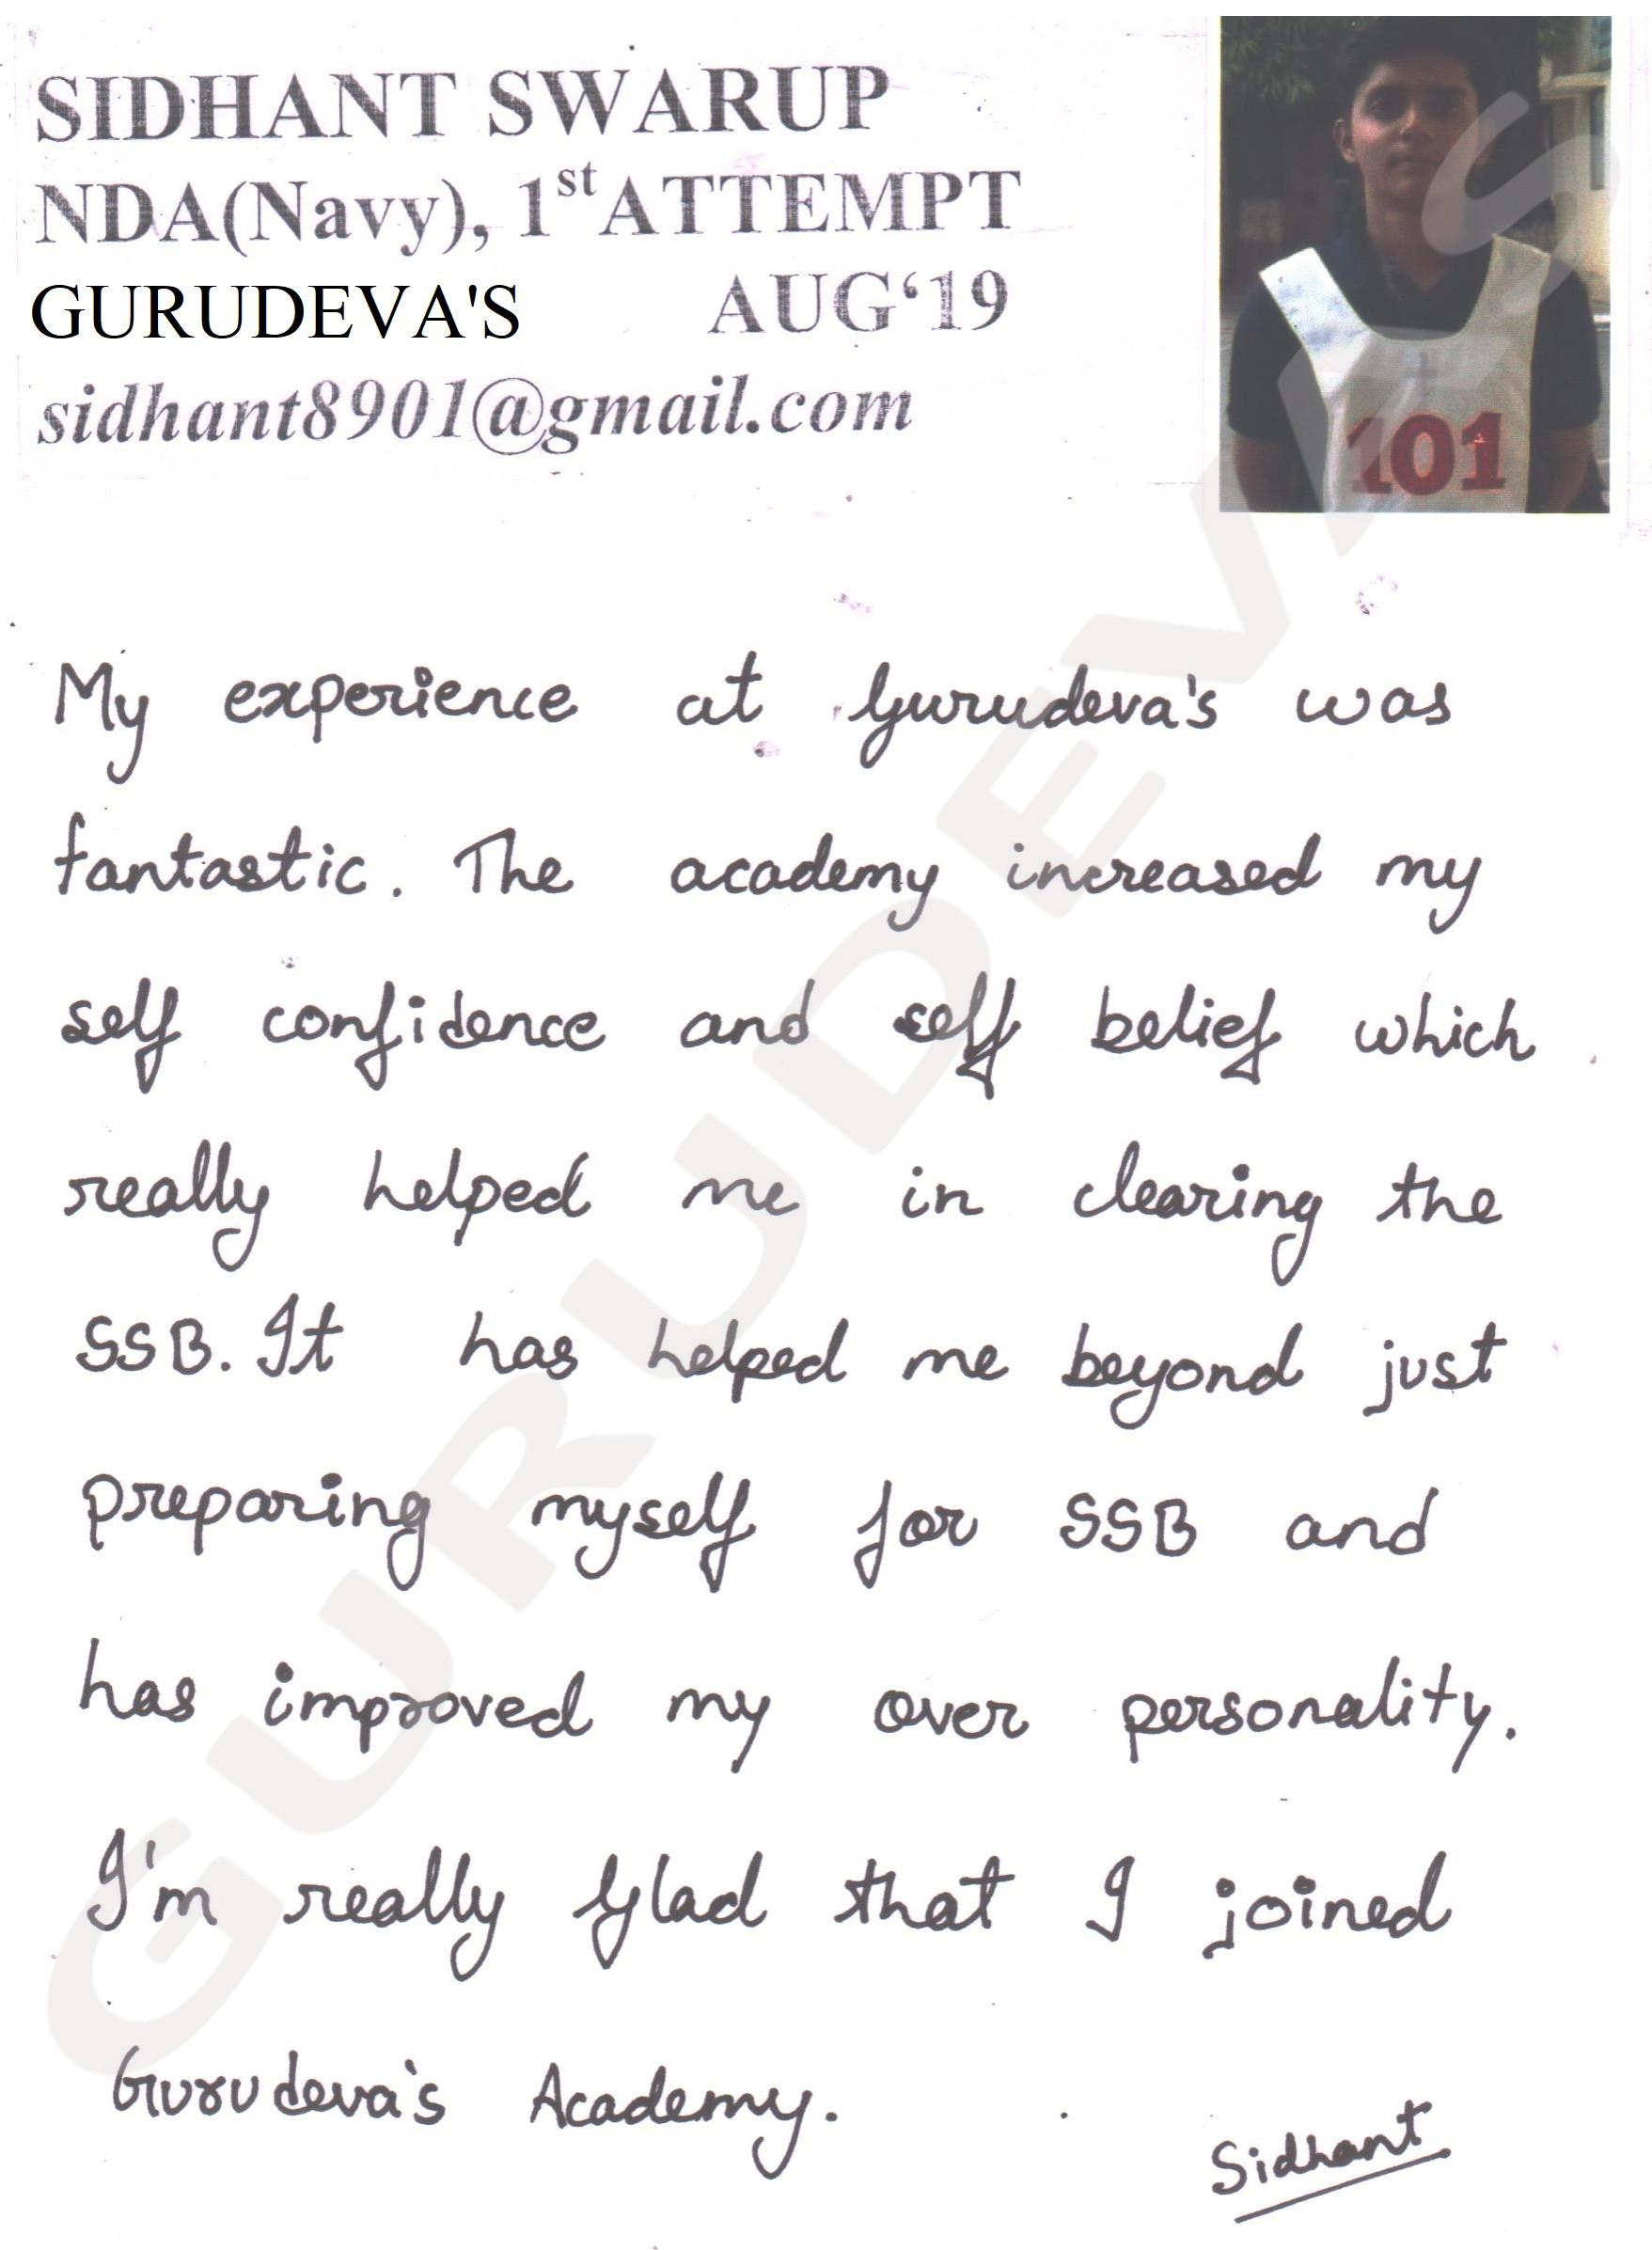 SIDHANT SWARUP
NDA(Navy), 1st ATTEMPT
GURUDEVA'S AUG‘19
sidhant8901@gmail.com
101
My experience at Gurudeva's was
fantastic. The academy increased my
self confidence and self belief which
really helped me in clearing the
SSB. It has helped me beyond just
preparing myself for SSB and
has improved my over personality.
I'm really Glad that I joined
Gurudeva's Academy.
Sidhant
GURUDEVA'S